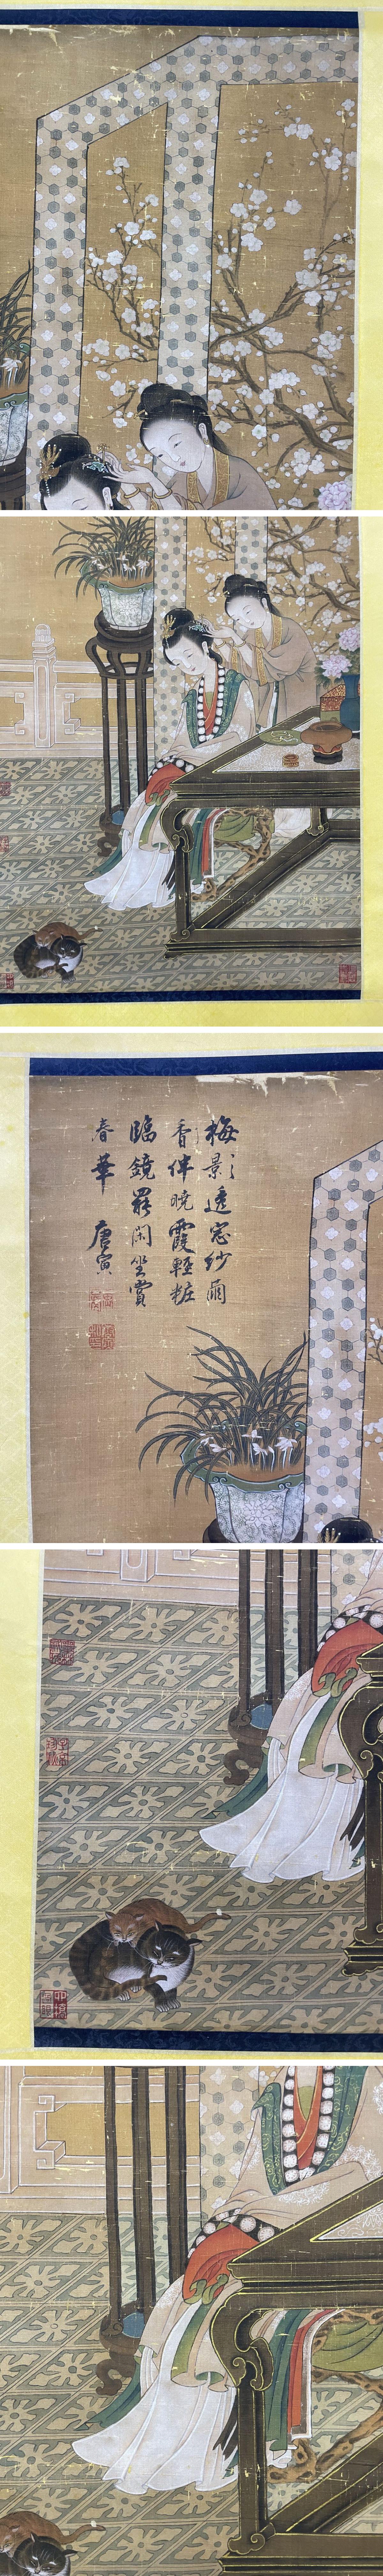 梅影透窓紗爾
香伴曉霞輕粧
臨鏡罷閑坐賞
春華 唐寅